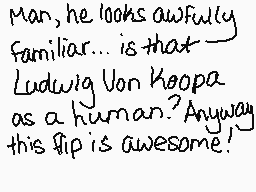 Man, he looks awfully
familiar... is that
Ludwig Von Koopa
as a human? Anyway
this flip is awesome!